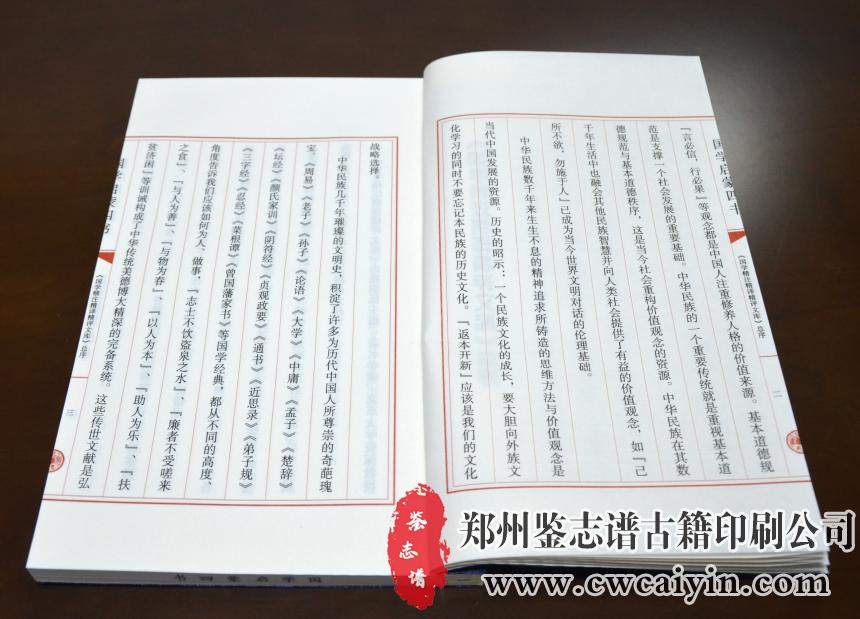 国学启蒙四书
《国学精注精译精评文库》总序
二
“言必信，行必果”等观念都是中国人注重修养人格的价值来源。基本道德规
范是支撑一个社会发展的重要基础。中华民族的一个重要传统就是重视基本道
德规范与基本道德秩序，这是当今社会重构价值观念的资源。中华民族在其数
千年生活中也融会其他民族智慧并向人类社会提供了有益的价值观念，如“己
所不欲，勿施于人”已成为当今世界文明对话的伦理基础。
中华民族数千年来生生不息的精神追求所铸造的思维方法与价值观念是
当代中国发展的资源。历史的昭示：一个民族文化的成长，要大胆向外族文
化学习的同时不要忘记本民族的历史文化。“返本开新”应该是我们的文化
战略选择。
中华民族几千年璀璨的文明史，积淀了许多为历代中国人所尊崇的奇葩瑰
宝。《周易》《老子》《孙子》《论语》《大学》《中庸》《孟子》《楚辞》
《坛经》《颜氏家训》《阴符经》《贞观政要》《通书》《近思录》《弟子规》
《三字经》《忍经》《菜根谭》《曾国藩家书》等国学经典，都从不同的高度、
角度告诉我们应该如何为人、做事，“志士不饮盗泉之水”、“廉者不受嗟来
之食”、“与人为善”、“与物为春”、“以人为本”、“助人为乐”、“扶
贫济困”等训诫构成了中华传统美德博大精深的完备系统。这些传世文献是弘
国学启蒙四书
《国学精注精译精评文库》总序
三
国学启蒙四书
一
鉴志谱
郑州鉴志谱古籍印刷公司
www.cwcaiyin.com